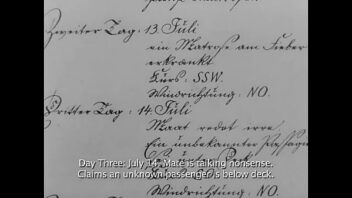 Zweiter Tag: 13. Juli
ein Matrose am Fieber
erkrankt
Kurs: SSW.
Windrichtung: NO.
Dritter Tag: 14. Juli
Maat redet irre.
Ein unbekannter Passagier
Day Three: July 14. Mate is talking nonsense.
Claims an unknown passenger is below deck.
Windrichtung: NO.